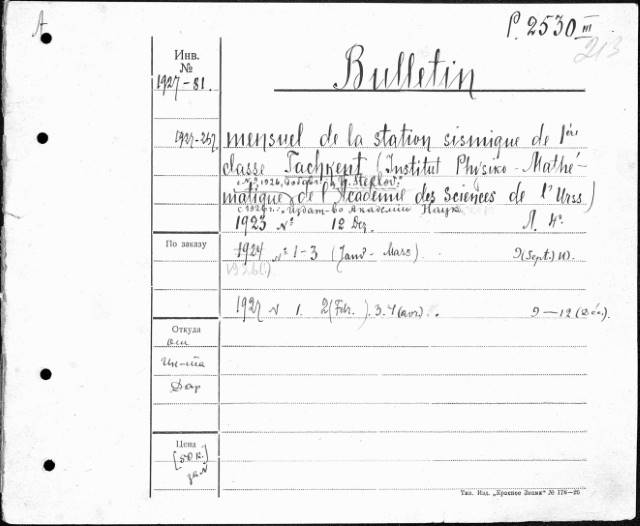 A
P. 2530 III
213
Инв.
№
1927-81.
Bulletin
1927-257.
mensuel de la station sismique de 1ère
classe Tachkent (Institut Physiko-Mathé-
W. Steklov
matique de l'Academie des Sciences de l'Urss.)
Издат-во Академии Наук
1923 № 12 Dez. Л. 4°.
По заказу
1924 № 1-3 (Janv - Mars) 9 (Sept.)
1927 № 1. 2 (Febr.). 3-4 (avr.) 9-12 (Déc.)
Откуда
от
Ин-та
Дар
Цена
[50 к.
за №
Тип. Изд. „Красное Знамя" № 178-26